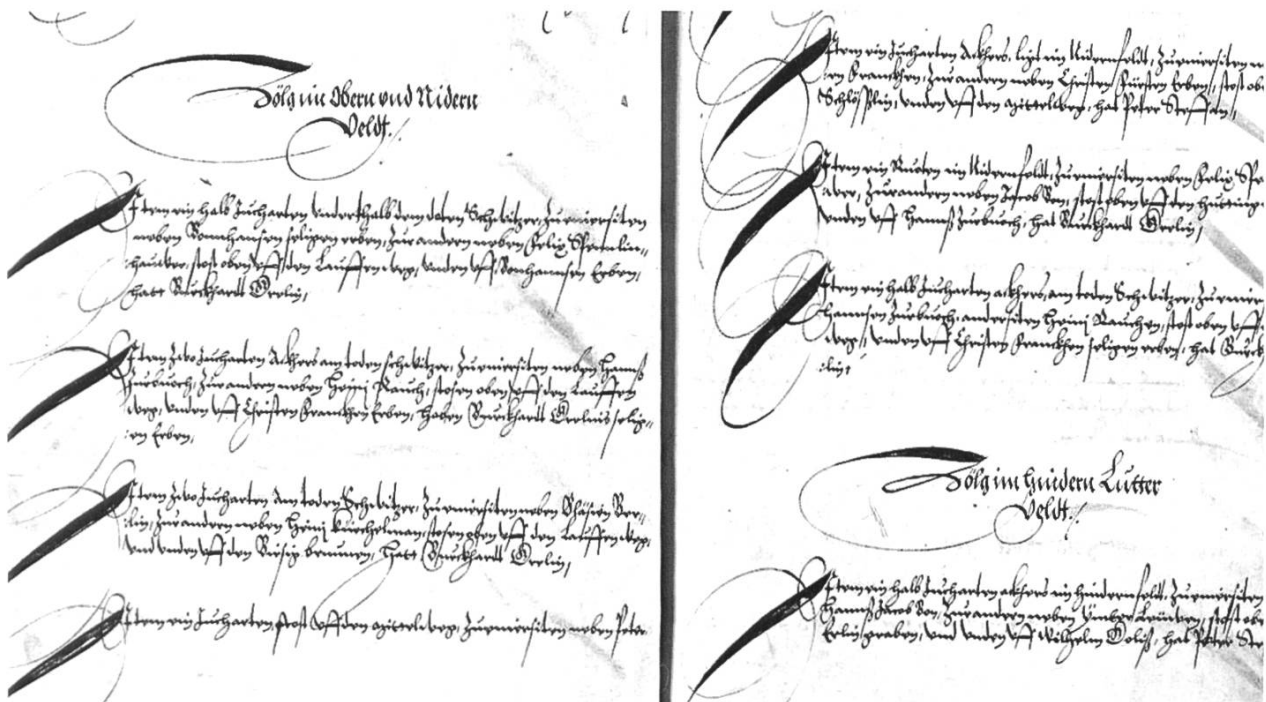 Zölg im Obern und Nidern
Veldt.
Item ein halb Jucharten underthalb dem doten Schwitzer, Zu einer siten
neben Sonhansen seligen erben, Zur andern neben Felix
hauwer, stost oben uff den Lauffen weg, unden uff Sonhannsen Erben,
hatt Burckhardt Oerlin,
Item Zwo Jucharten Ackhers am toden schwitzer, Zu einer siten neben Hannß
Zurbuoch, Zur andern neben Heini Rauch, stosen oben uff den Lauffen
weg, unden uff Christen Franckhen Erben, haben Burckhardt Oerlins selig-
en Erben,
Item Zwo Jucharten Am toden Schwitzer, Zu einer siten neben Oer-
lin, Zur andern neben Heini Kuechelman, stosen oben uff den Lauffen weg,
und unden uff den brunnen, hatt Burckhardt Oerlin,
Item ein Jucharten stost uff den Mittelweg, Zu einer siten neben Peter
Item ein Jucharten Ackhers, ligt im Nidernfeldt, Zu einer siten
en Franckhen, Zur andern neben Christen Fürsten Erben, stost
Schlösslin, unden uff den Mittelweg, hat Peter Steffan,
Item ein Ruoten im Nidernfeldt, Zu einer siten neben Felix
Zur andern neben Jacob Von, stost oben uff den
unden uff Hannß Zurbuoch, hat Burckhardt Oerlin,
Item ein halb Jucharten ackhers, am toden Schwitzer, Zu einer
hannsen Zurbuoch, andersiten Heini Rauchen, stost oben uff
weg, unden uff Christen Franckhen seligen erben, hat Burck
lin,
Zölg im hindern Lutter
Veldt.
Item ein halb Jucharten ackhers im hindernfeldt, Zu einer siten
Hannß Jacob Von, Zur andern neben stost
graben, und unden uff Wilhelm hat Peter Ste